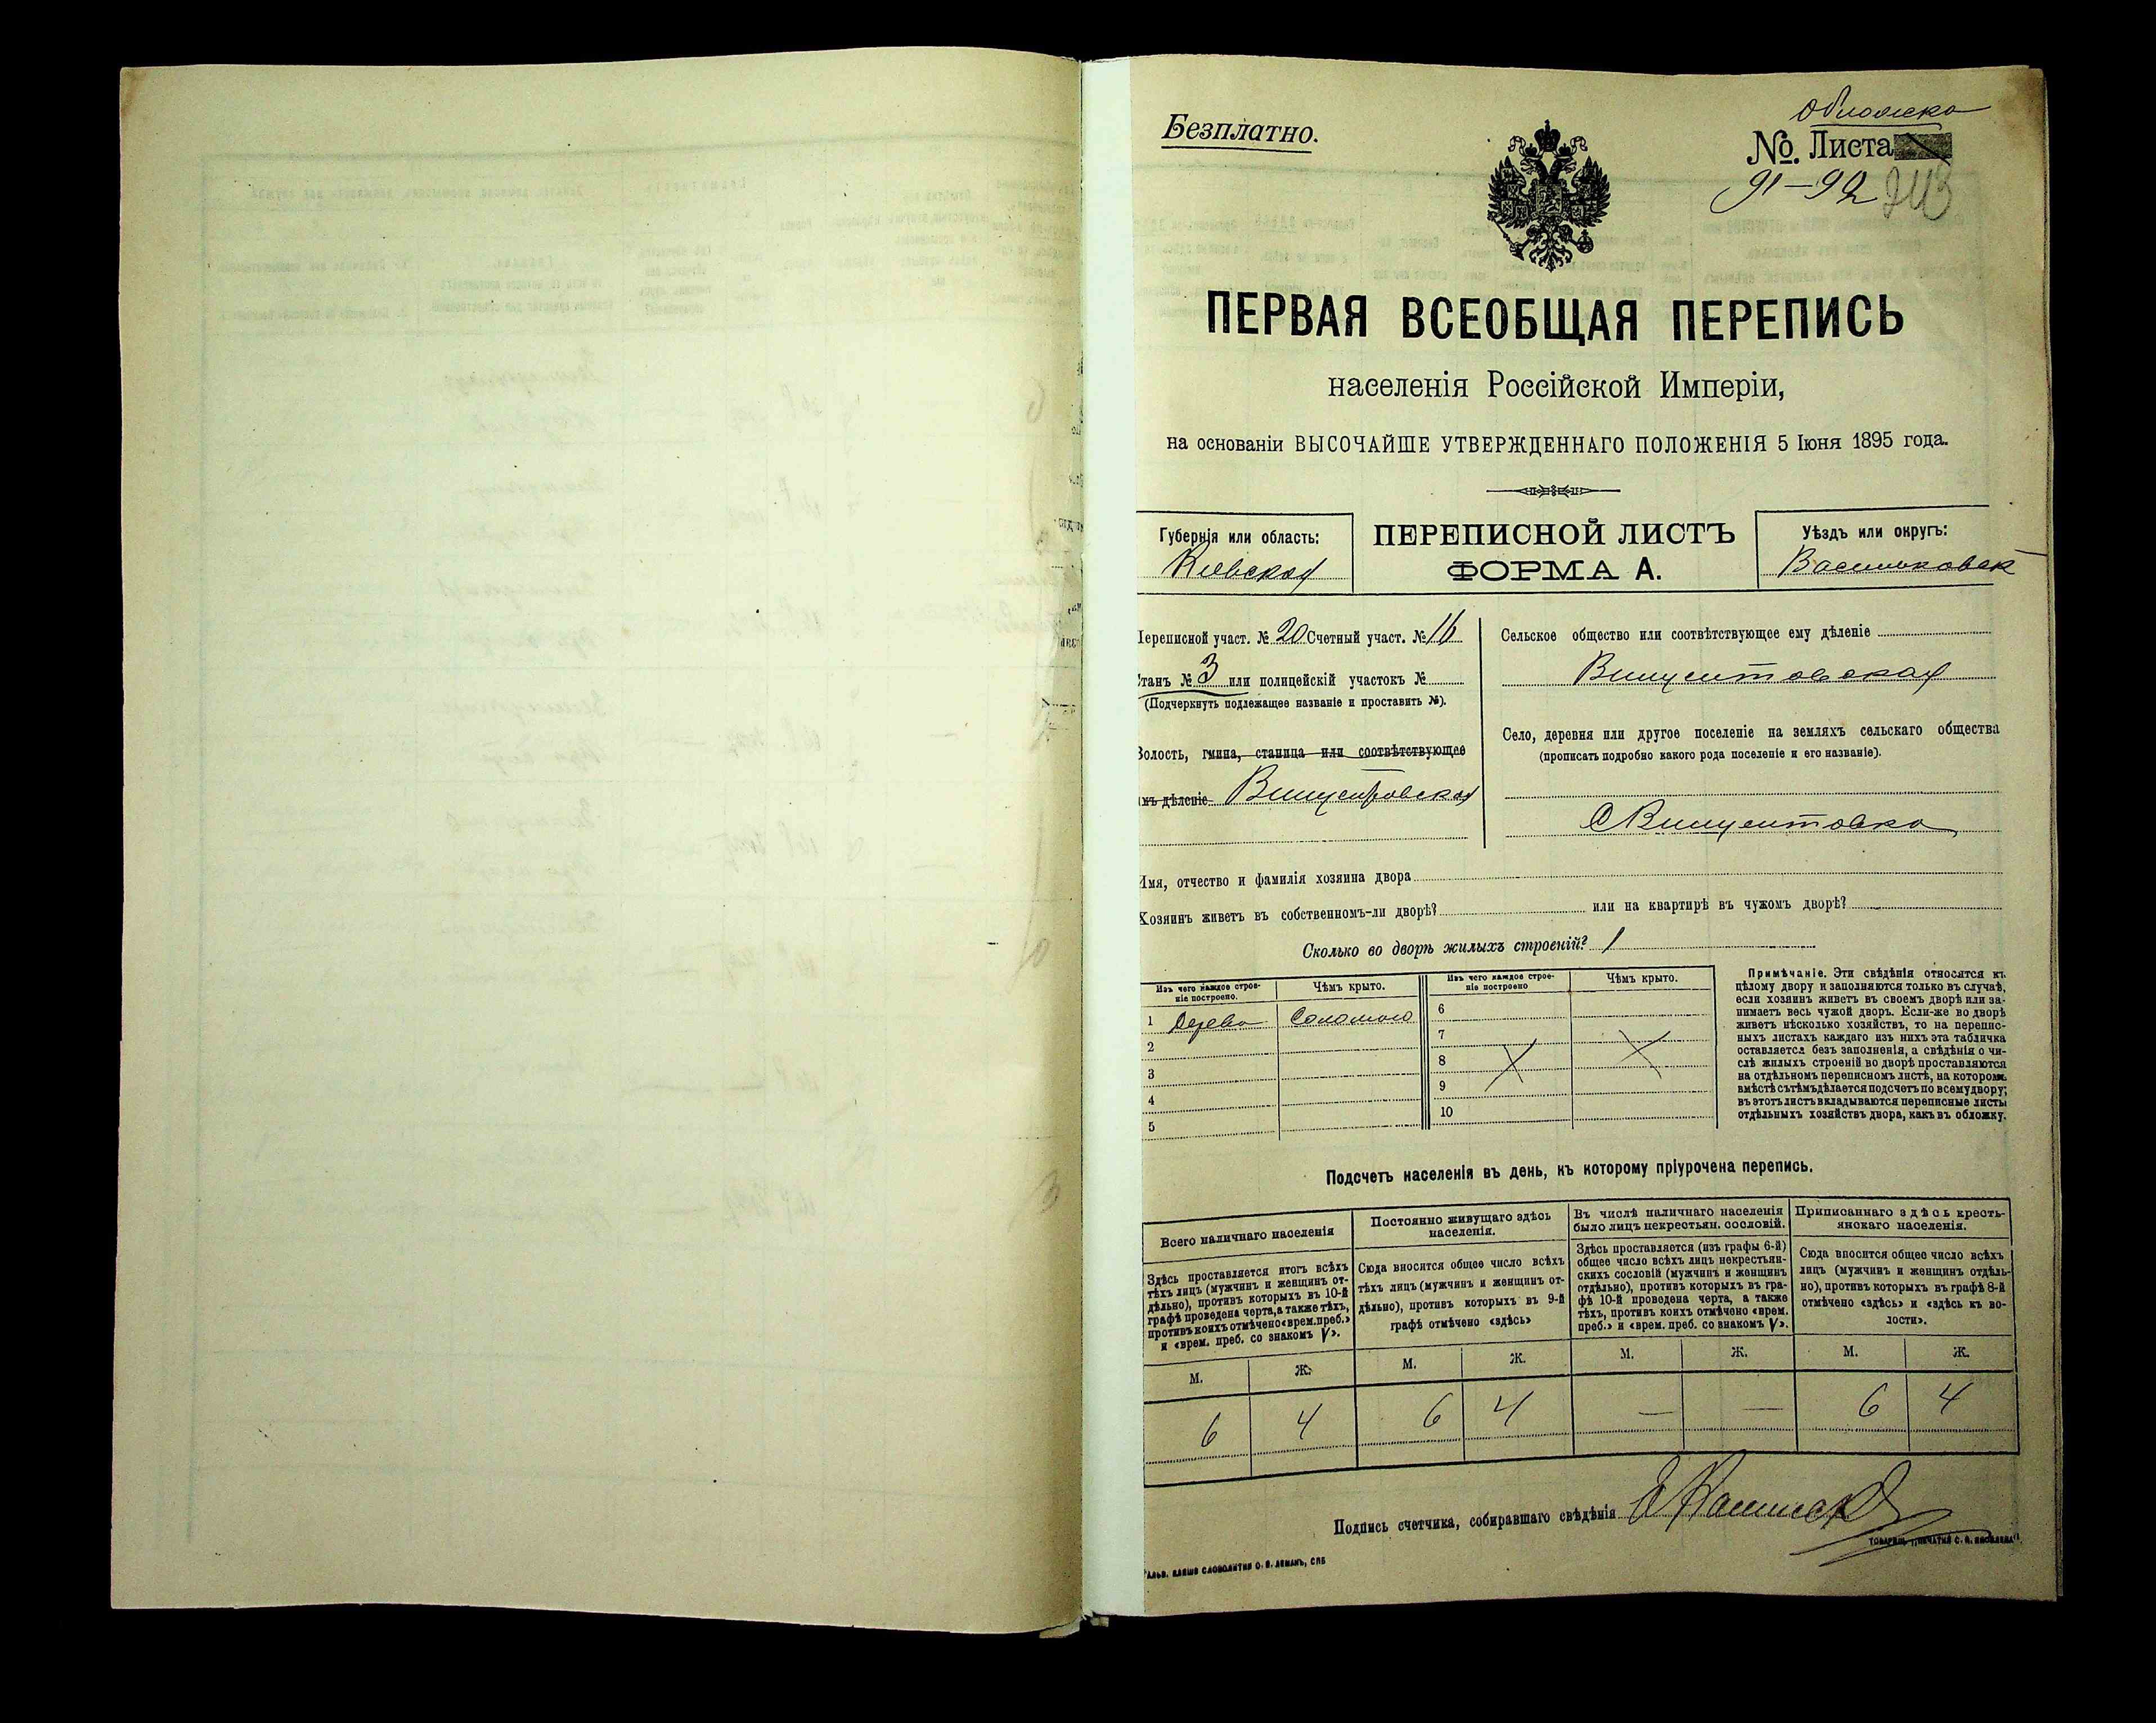 Безплатно.
Обложка
№. Листа
91-92
243
ПЕРВАЯ ВСЕОБЩАЯ ПЕРЕПИСЬ
населенія Россійской Имперіи,
на основаніи ВЫСОЧАЙШЕ УТВЕРЖДЕННАГО ПОЛОЖЕНІЯ 5 Іюня 1895 года.
Губернія или область:
Кіевская
ПЕРЕПИСНОЙ ЛИСТЪ
ФОРМА А.
Уѣздъ или округъ:
Васильковск
Переписной участ. № 20 Счетный участ. № 16
Станъ № 3 или полицейскій участокъ №
(Подчеркнуть подлежащее названіе и проставить №).
Волость, гмина, станица или соотвѣтствующее
имъ дѣленіе Винцентовская
Сельское общество или соотвѣтствующее ему дѣленіе
Винцентовская
Село, деревня или другое поселеніе на земляхъ сельскаго общества
(прописать подробно какого рода поселеніе и его названіе).
С Винцентовка
Имя, отчество и фамилія хозяина двора
Хозяинъ живетъ въ собственномъ-ли дворѣ? или на квартирѣ въ чужомъ дворѣ?
Сколько во дворѣ жилыхъ строеній? 1
Изъ чего каждое строе-
ніе построено.
Чѣмъ крыто.
1 Дерево Соломою
2
3
4
5
Изъ чего каждое строе-
ніе построено
Чѣмъ крыто.
6
7
8
9
10
Примѣчаніе. Эти свѣдѣнія относятся къ
цѣлому двору и заполняются только въ случаѣ,
если хозяинъ живетъ въ своемъ дворѣ или за-
нимаетъ весь чужой дворъ. Если-же во дворѣ
живетъ нѣсколько хозяйствъ, то на перепис-
ныхъ листахъ каждаго изъ нихъ эта табличка
оставляется безъ заполненія, а свѣдѣнія о чи-
слѣ жилыхъ строеній во дворѣ проставляются
на отдѣльномъ переписномъ листѣ, на которомъ
вмѣстѣ съ тѣмъ дѣлается подсчетъ по всему двору;
въ этотъ листъ вкладываются переписные листы
отдѣльныхъ хозяйствъ двора, какъ въ обложку.
Подсчетъ населенія въ день, къ которому пріурочена перепись.
Всего наличнаго населенія
Здѣсь проставляется итогъ всѣхъ
тѣхъ лицъ (мужчинъ и женщинъ от-
дѣльно), противъ которыхъ въ 10-й
графѣ проведена черта, а также тѣхъ,
противъ коихъ отмѣчено «врем. преб.»
и «врем. преб. со знакомъ V».
Постоянно живущаго здѣсь
населенія.
Сюда вносится общее число всѣхъ
тѣхъ лицъ (мужчинъ и женщинъ от-
дѣльно), противъ которыхъ въ 9-й
графѣ отмѣчено «здѣсь»
Въ числѣ наличнаго населенія
было лицъ некрестьян. сословій.
Здѣсь проставляется (изъ графы 6-й)
общее число всѣхъ лицъ некрестьян-
скихъ сословій (мужчинъ и женщинъ
отдѣльно), противъ которыхъ въ гра-
фѣ 10-й проведена черта, а также
тѣхъ, противъ коихъ отмѣчено «врем.
преб.» и «врем. преб. со знакомъ V».
Приписаннаго здѣсь кресть-
янскаго населенія.
Сюда вносится общее число всѣхъ
лицъ (мужчинъ и женщинъ отдѣль-
но), противъ которыхъ въ графѣ 8-й
отмѣчено «здѣсь» и «здѣсь къ во-
лости».
М. Ж. М. Ж. М. Ж. М. Ж.
6 4 6 4 — — 6 4
Подпись счетчика, собиравшаго свѣдѣнія
ГАЛЬВ. КЛИШЕ СЛОВОЛИТНИ О. И. ЛЕМАНЪ, СПБ
ТОВАРИЩ. „ПЕЧАТНЯ С. П. ЯКОВЛЕВА“.